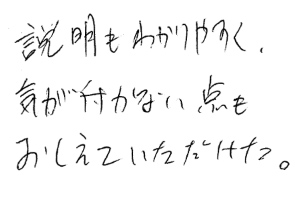 説明もわかりやすく、
気が付かない点も
おしえていただけた。